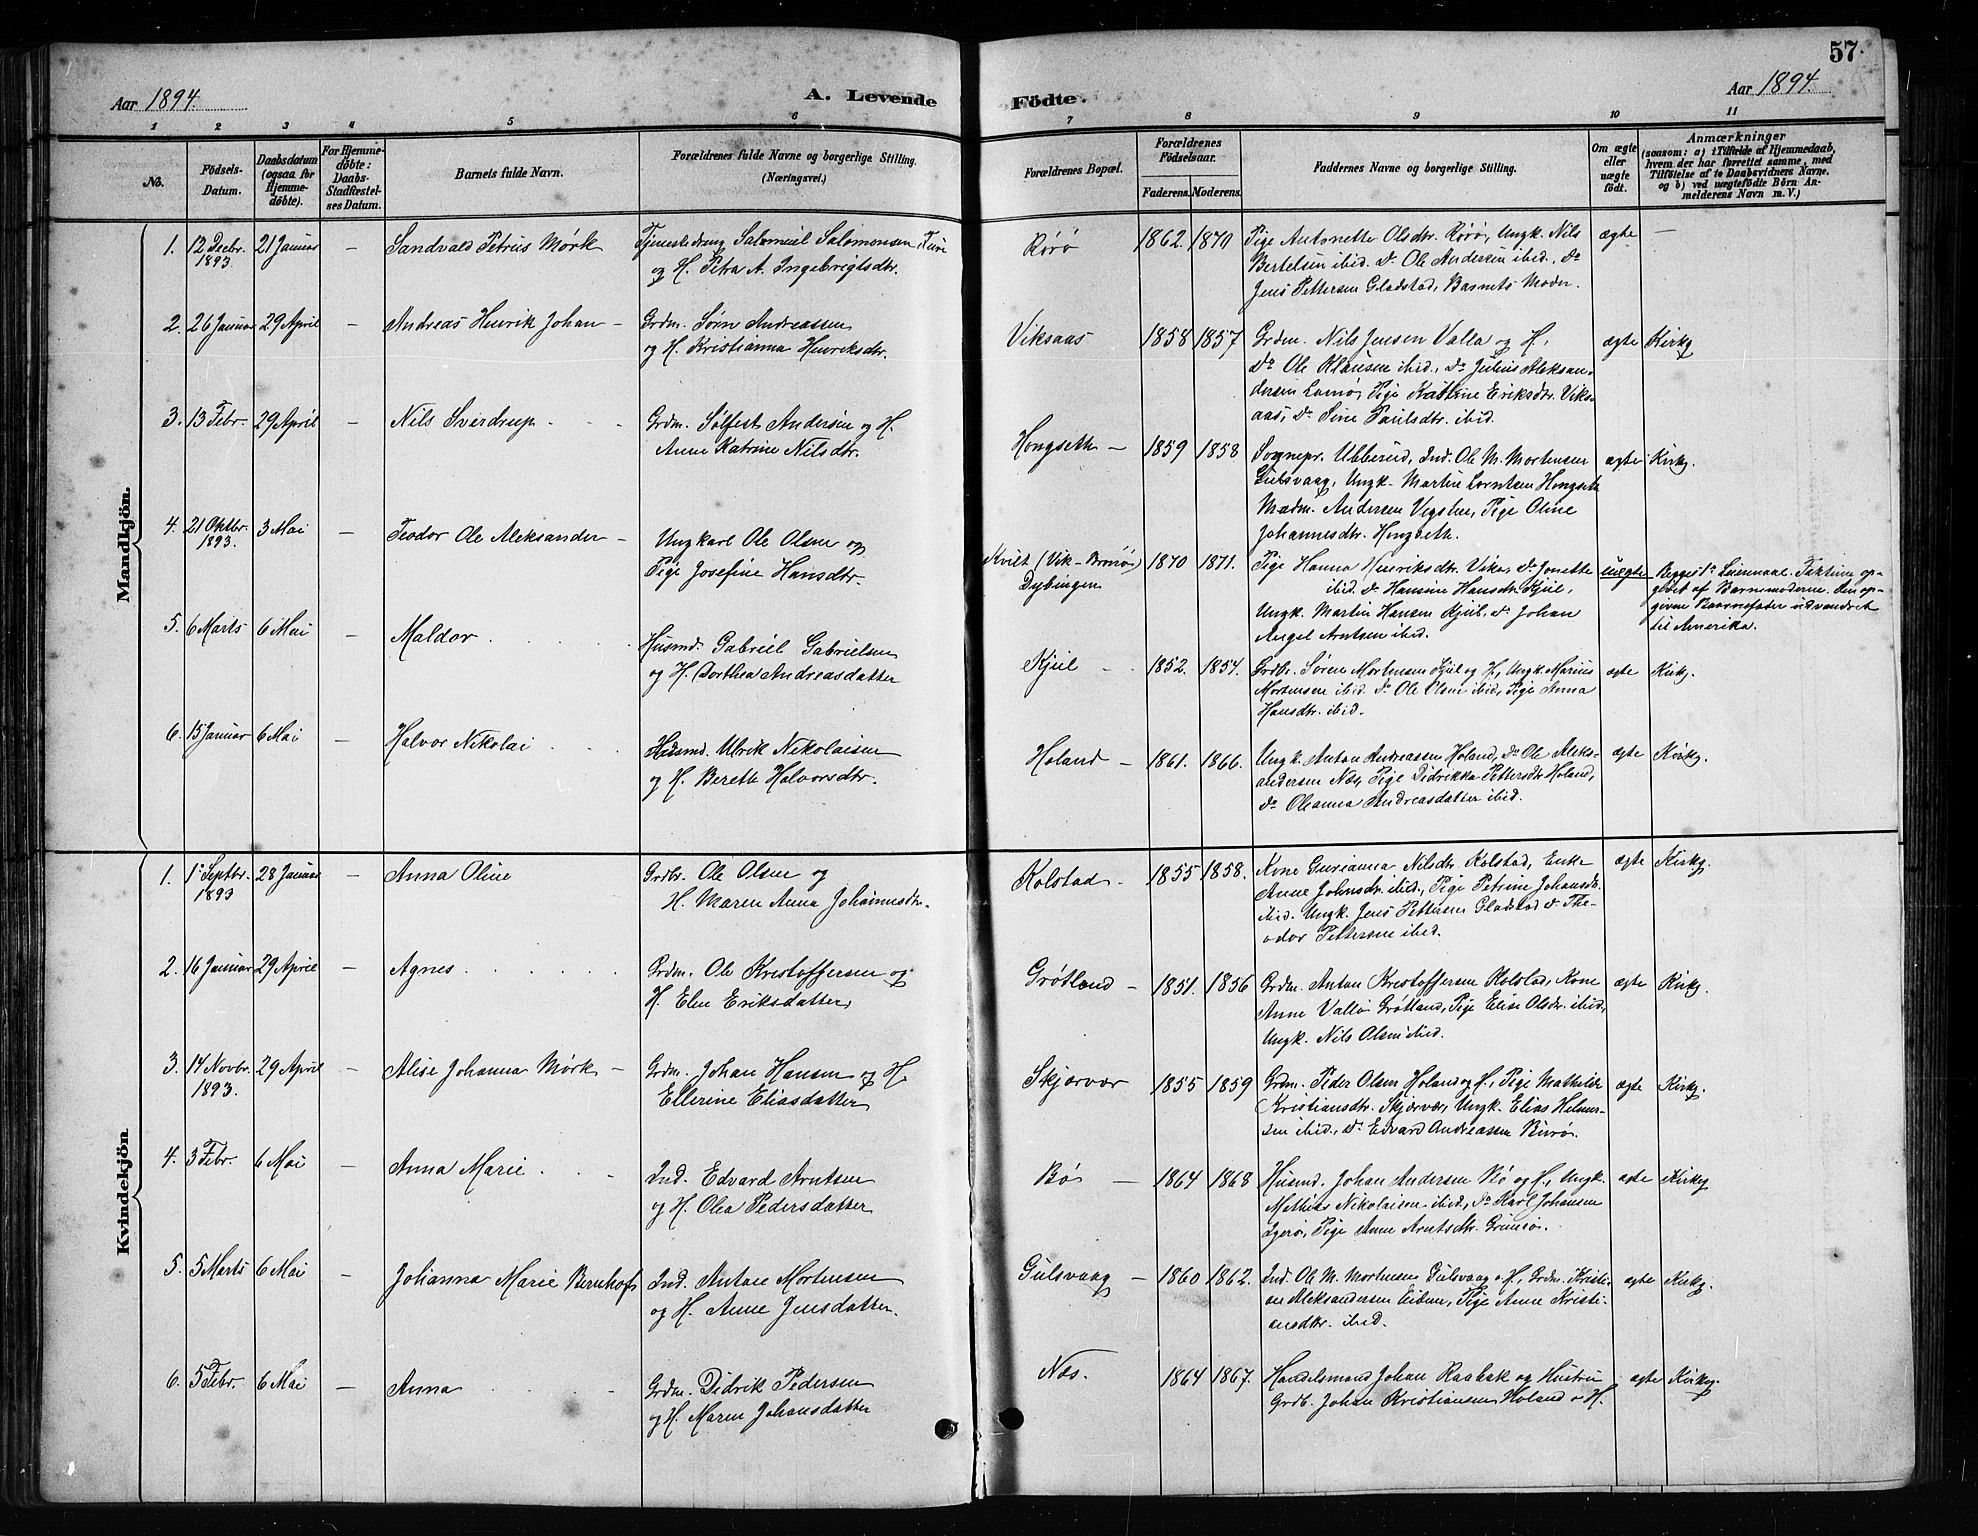 57.
Aar 1894.
A. Levende
Födte.
Aar 1894.
1 2 3 4 5 6 7 8 9 10 11
No.
Födsels-
Datum.
Daabsdatum
(ogsaa for
Hjemme-
døbte).
For Hjemme-
døbte:
Daabs-
Stadfæstel-
ses Datum.
Barnets fulde Navn.
Forældrenes fulde Navne og borgerlige Stilling.
(Næringsvei.)
Forældrenes Bopæl.
Forældrenes
Födselsaar.
Faderens. Moderens.
Faddernes Navne og borgerlige Stilling.
Om ægte
eller
uægte
født.
Anmærkninger
(saasom: a) i Tilfælde af Hjemmedaab,
hvem der har forrettet samme, med
Tilföielse af to Daabsvidners Navne,
og b) ved uægtefödte Börn An-
melderens Navn m.V.)
Mandkjön.
1. 12 Decbr. 1893 21 Januar – Sandvald Petrus Mørk
Tjenestedreng Salomiel Salomonsen
og H. Petra A. Ingebrigtsdtr.
Rørø 1862. 1870
Pige Antonette Olsdtr. Rørø, Ungk. Nils
Bertelsen ibid. Do Ole Andersen ibid., Do
Jens Pettersen Gladstad, Barnets Moder.
ægte –
2. 26 Januar 29 April – Andreas Henrik Johan –
Grdm. Søren Andreassen
og H. Kristianna Henriksdtr.
Viksaas 1858 1857
Grdm. Nils Jensen Valla og H,
Do Ole Klausen ibid., Do Julius Aleksan-
dersen Lamø, Pige Katrine Eriksdtr. Viks-
aas, Do Sine Paulsdtr. ibid.
ægte Kirkg
3. 13 Febr. 29 April – Nils Sverdrup
Grdm. Sølfest Andersen og H.
Anne Katrine Nilsdtr.
Hongseth – 1859 1858
Sognepr. Ubberud, Ind. Ole M. Mortensen
Gulsvaag, Ungk. Martin Lorntsen Hongseth
Madm. Andersen Vegsten, Pige Oline
Johannesdtr. Hongseth.
ægte Kirkg.
4. 21 Oktbr. 1893. 3 Mai – Teodor Ole Aleksander –
Ungkarl Ole Olsen og
Pige Josefine Hansdtr.
Kvilt (Vik - Brønø)
Dybingen
1870 1871.
Pige Hanna Henriksdtr. Vika, Do Jonette
ibid. Do Hansine Hansdtr. Kjul,
Ungk. Martin Hansen Kjul, Do Johan
Angel Arntsen ibid.
uægte
Begges 1ste Leiermaal. Faktum op-
givet af Barnemoderen. Den op-
givne Barnefader udvandret
til Amerika.
5. 6 Marts 6 Mai – Maldor
Husmd. Gabriel Gabrielsen
og H. Dorthea Andreasdatter
Kjul – 1852. 1854.
Grdbr. Søren Mortensen Kjul og H, Ungk. Marius
Mortensen ibid. Do Ole Olsen ibid, Pige Anna
Hansdtr. ibid.
ægte Kirkg.
6. 15 Januar 6 Mai – Halvor Nikolai
Husmd. Ulrik Nikolaisen
og H. Bereth Halvorsdtr.
Holand – 1861. 1866.
Ungk. Anton Andreassen Holand, Do Ole Aleks-
andersen Næs, Pige Didrikka Pettersdtr Holand,
Do Oleanna Andreasdatter ibid.
ægte Kirkg.
Kvindekjön
1. 1 Septbr. 1893 28 Januar – Anna Oline
Grdbr. Ole Olsen og
H. Maren Anna Johannesdtr.
Kolstad – 1855 1858.
Kone Gurianna Nilsdtr. Kolstad, Enke
Anne Johnsdtr. ibid., Pige Petrine Johansdtr.
ibid. Ungk. Jens Pettersen Gladstad Do The-
odor Pettersen ibid.
ægte Kirkg.
2. 16 Januar 29 April – Agnes
Grdm. Ole Kristoffersen og
H. Elen Eriksdatter,
Grøtland – 1851. 1856
Grdm. Anton Kristoffersen Kolstad, Kone
Anne Valla Grøtland, Pige Elise Olsdtr. ibid,
Ungk. Nils Olsen ibid.
ægte Kirkg.
3. 14 Novbr. 1893. 29 April – Alise Johanna Mørk –
Grdm. Johan Hansen og H
Ellerine Eliasdatter
Skjærvær 1855 1859
Grdm. Peder Olsen Holand og H, Pige Mathilde
Kristiansdtr. Skjærvær, Ungk. Elias Helmer-
sen ibid., Do Edvard Andreassen Burø.
ægte Kirkg.
4. 3 Febr. 6 Mai – Anna Marie
Ind. Edvard Arntsen
og H. Olea Pedersdatter
Bø – 1864 1868
Husmd. Johan Andersen Bø og H, Ungk.
Mathias Nikolaisen ibid, Do Karl Johansen
Ogerø, Pige Anne Arntsdtr. Grimsø.
ægte Kirkg
5. 5 Marts 6 Mai – Johanna Marie Bernhoft
Ind. Antan Mortensen
og H. Anne Jensdatter.
Gulsvaag – 1860 1862.
Ind. Ole M. Mortensen Gulsvaag o H, Grdm. Kristi-
an Aleksandersen Eibem, Pige Anne Kristi-
ansdtr. ibid.
ægte Kirkg.
6. 5 Febr. 6 Mai – Anna
Grdm. Didrik Pedersen
og H. Maren Johansdatter
Næs. 1864 1867.
Handelsmand Johan Raabak og Hustru
Grdb. Johan Kristiansen Holand o H.
ægte Kirkg.